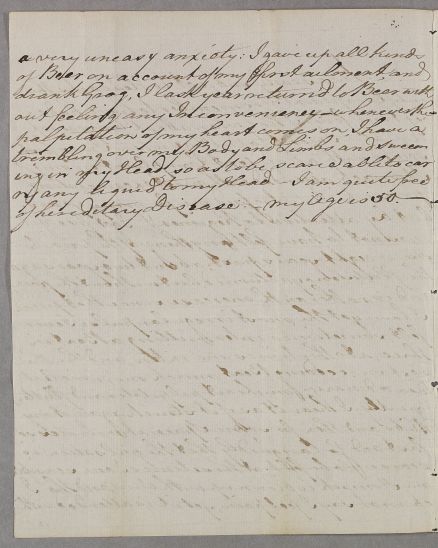 a very uneasy anxiety: I gave up all kind
of Beer on account of my first ailment and
drank Grog, I last year return'd to Beer with
out feeling any Inconveniency whenever the
palpitation of my heart comes on I have a
trembling over my Body and Limbs and
ing in my Head so as to be scarce able to car
ry any liquid to my Head I am quite free
of hereditary Disease my Age is 50.